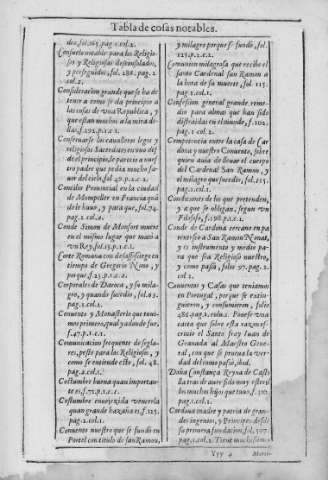 Tabla de cosas notables.
dos, fol.165. pag. 2. col. 2.
Consuelo notable para los Religio-
sos y Religiosas desconsolados,
y perseguidos, fol. 288. pag. 2
col. 2.
Consideracion grande que se ha de
tener a como se da principio a
las cosas de vna Republica, y
que estan mucho a la mira
fol. 192. p. 1. c. 2.
Conseruarse los cavalleros legos y
religiosos
de el principe, le parecio a nuestro
padre que pedia mucho
fol. 40. p. 1. c. 2.
Concilio Prouincial en la ciudad
de Mompeller en Francia
de le huuo, y para que, fol. 74.
pag. 2. col. 2.
Conde Simon de Monfort muere
en el mismo lugar que mato a
vn Rey, fol. 15. p. 1. c. 1.
Corte Romana con desassosiego en
tiempo de Gregorio Nono, y
por que, f. 23. p. 1. c. 2.
Corporales de Daroca, y su mila-
gro, y quando sucedio, fol. 83.
pag. 2. col. 1.
Conuento y Monasterio que tuui-
mos primero, qual y adonde fue,
f. 47. p. 1. c. 1.
Comunicacion frequente de segla-
res, peste para los Religiosos, y
como se entiende esto, fol. 48.
pag. 2. col. 1.
Costumbre buena quan importan-
te es, f. 72. p. 1. c. 2.
Costumbre enuejezida vencerla
quan grande hazaña es f. 125.
pag. 1. col. 2.
Conuento nuestro que se fundo en
Portel con titulo de san Ramon,
y milagro porque se fundo, fol.
125. p. 2. c. 2.
Comunion milagrosa que recibe el
santo Cardenal San Ramon a
la hora de su muerte, fol. 115.
pag. 1. col. 2.
Confession general grande reme-
dio para almas que han sido
distraidas en el mundo, f. 102.
pag. 1. col. 2.
Competencia entre la casa de Car-
dona y nuestro Conuento, sobre
quien auia de lleuar el cuerpo
del Cardenal San Ramon, y el
milagro que sucedio, fol. 115.
pag. 1. col. 2.
Condiciones de los que pretenden,
y a que se obligan, segun vn
Filosofo, f. 198. p. 1. c. 2.
Conde de Cardona cercano en pa-
rentesco a San Ramon Nonat,
y es instrumento y medio pa-
ra que sea Religioso nuestro,
y como passò, folio 97. pag. 2.
col. 1.
Conuentos y Casas que teniamos
en Portugal, por que se extin-
guieron, y consumieron, folio
484. pag. 1. col. 1. Ponese vna
carta que sobre esta razon es-
criuio el Santo fray Luis de
Granada al Maestro Gene-
ral, con que se prueua la ver-
dad del como passò, ibid.
Doña Constança Reyna de Casti-
lla tras de auer sido muy esteril
tuuo muchos hijos que tuuo,
pag. 1. col. 2.
Cardona madre y patria de gran-
des ingenios, y Principes desde
su primera fundacion, fol. 107
pag. 1. col. 1. Tiene
Yyy 4